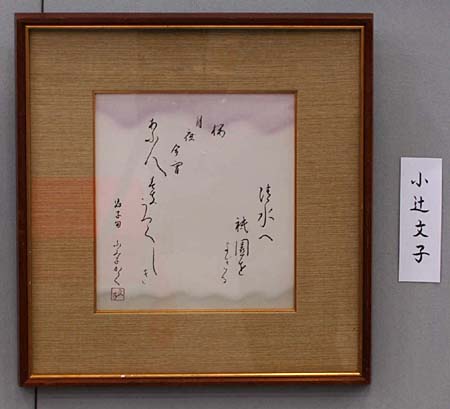 清水へ
祇園を
よぎる
桜
月夜
今宵
あふ人みなうつくし
き
ふみ子かく
小辻文子